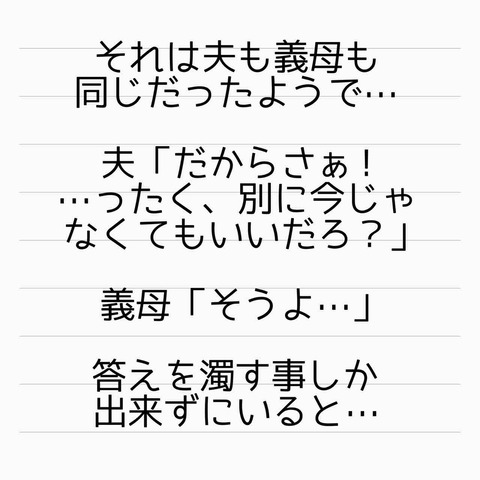 それは夫も義母も
同じだったようで…
夫「だからさぁ！
…ったく、別に今じゃ
なくてもいいだろ？」
義母「そうよ…」
答えを濁す事しか
出来ずにいると…